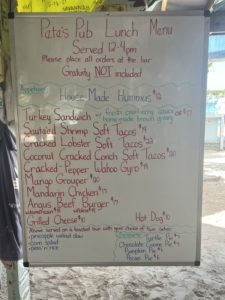 Pata's Pub Lunch Menu
Served 12-4pm
Please place all orders at the bar
Gratuity NOT included
Appetizer:
House Made Hummus $12
Turkey Sandwich
fresh cranberry sauce or $17
home made brown gravy
Sautéed Shrimp Soft Tacos $19
Cracked Lobster Soft Tacos $23
Coconut Cracked Conch Soft Tacos $20
Cracked Pepper Wahoo Gyro $19
Mango Grouper $20
Mandarin Chicken $17
Angus Beef Burger $17
Grilled Cheese $10
Hot Dog $10
Above served on a toasted bun with your choice of two sides:
• pineapple walnut slaw
• corn salad
• peas n' rice
Desserts:
Turtle Pie $7
Chocolate Creme Pie $7
Pumpkin Pie $6
Pecan Pie $6